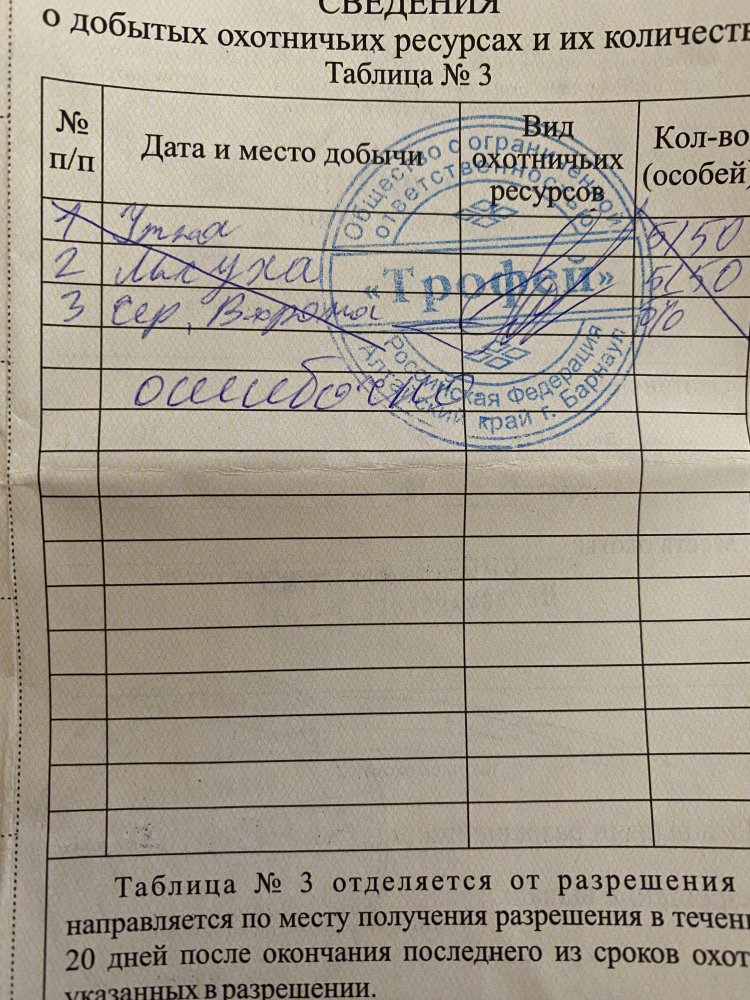 СВЕДЕНИЯ
о добытых охотничьих ресурсах и их количеств
Таблица № 3
№ п/п
Дата и место добычи
Вид охотничьих ресурсов
Кол-во (особей)
1 Утка 5/50
2 Лысуха 5/50
3 Сер. Ворона
ошибочно
Общество с ограниченной
ответственностью
«Трофей»
Российская Федерация
Алтайский край г. Барнаул
Таблица № 3 отделяется от разрешения
направляется по месту получения разрешения в течени
20 дней после окончания последнего из сроков охот
указанных в разрешении.